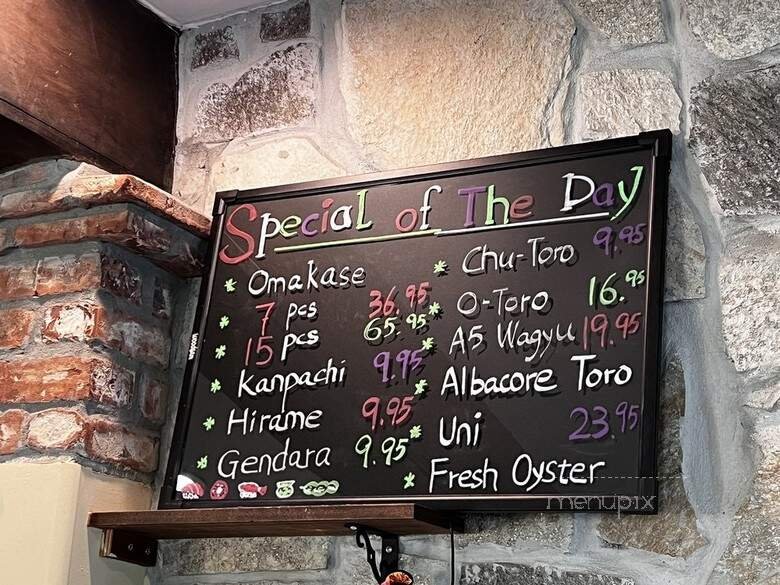 Special of The Day
* Omakase
* 7 pcs 36.95
* 15 pcs 65.95
* Kanpachi 9.95
* Hirame 9.95
* Gendara 9.95
* Chu-Toro 9.95
* O-Toro 16.95
* A5 Wagyu 19.95
* Albacore Toro
* Uni 23.95
* Fresh Oyster
menupix